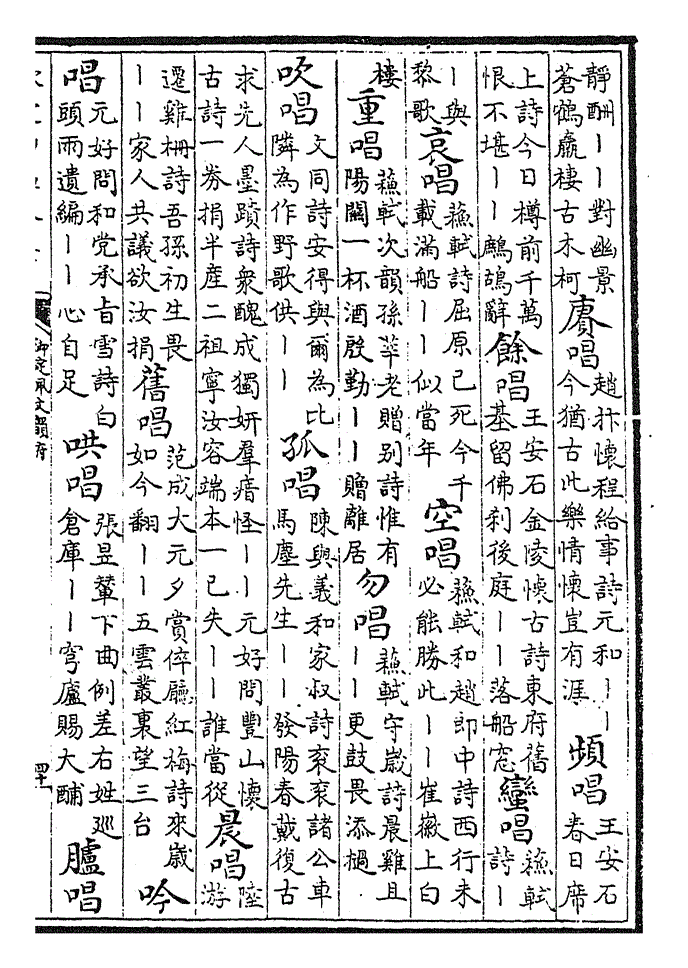 靜酬丨丨對幽景蒼鶴羸棲古木柯 賡唱 趙抃懷程給事詩元和丨丨今猶古此樂情懷豈有涯 頻唱 王安石春日席
上詩今日樽前千萬恨不堪丨丨鷓鴣辭 餘唱 王安石金陵懷古詩東府舊基留佛刹後庭丨丨落船窓 蠻唱 蘇軾詩丨
丨與黎歌 哀唱 蘇軾詩屈原已死今千載滿船丨丨似當年 空唱 蘇軾和趙郎中詩西行未必能勝此丨丨崔徽上白
樓 重唱 蘇軾次韻孫莘老贈别詩惟有陽關一杯酒殷勤丨丨贈離居 勿唱 蘇軾守歲詩晨雞且丨丨更鼓畏添檛
吹唱 文同詩安得與爾為比隣為作野歌供丨丨 孤唱 陳與義和家叔詩衮衮諸公車馬塵先生丨丨發陽春戴復古
求先人墨蹟詩衆醜成獨妍羣瘖怪丨丨元好問豐山懷古詩一券捐半產二祖寧汝容端本一已失丨丨誰當從 晨唱 陸游
遷雞柵詩吾孫初生畏丨丨家人共議欲汝捐 舊唱 范成大元夕賞倅廳紅梅詩來歲如今翻丨丨五雲叢裏望三台 吟
唱 元好問和党承旨雪詩白頭雨遺編丨丨心自足 哄唱 張昱輦下曲例差右姓廵倉庫丨丨穹廬賜大酺 臚唱
御定佩文韻府